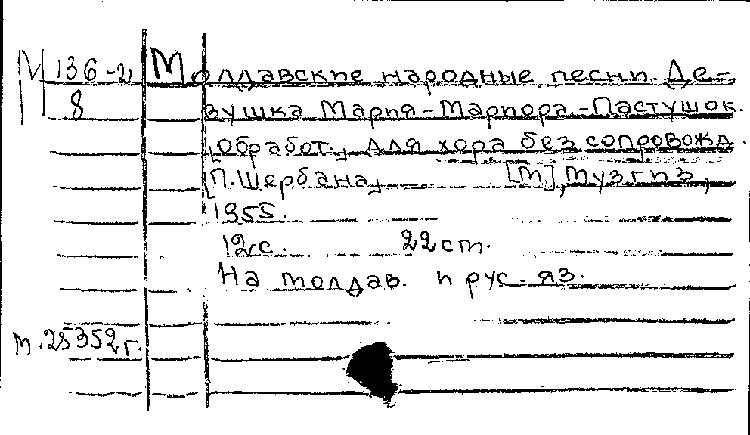 М 136-2 Молдавские народные песни. Де-
8 вушка Мария-Мариора-Пастушок.
[обработ., для хора без сопровожд.
П. Щербана, [М], Музгиз,
1955.
12с. 22 ст.
На молдав. и рус. яз.
м. 25352 г.